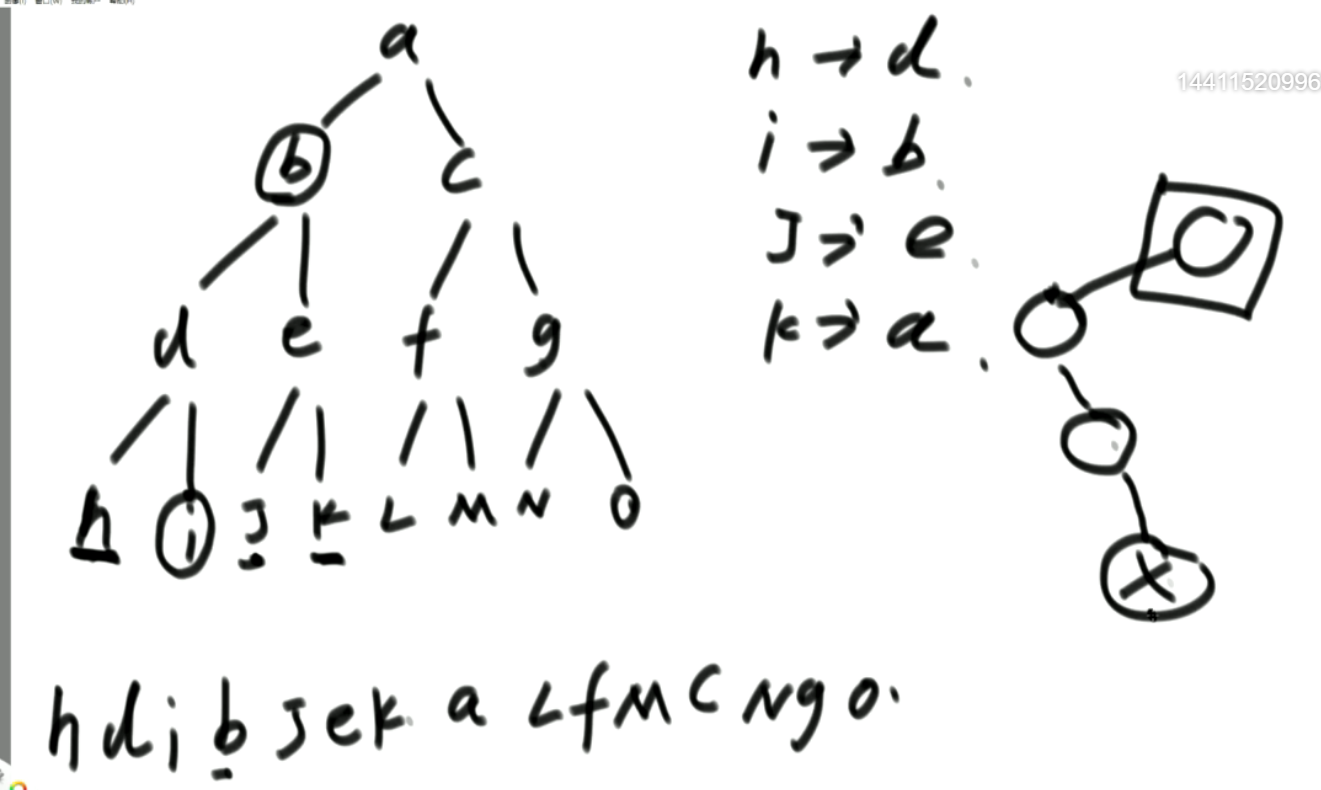 a
b c
d e f g
h i J K L M N O
h → d
i → b
J → e
k → a
14411520996
X
h d i b J e k a L f M C N g o